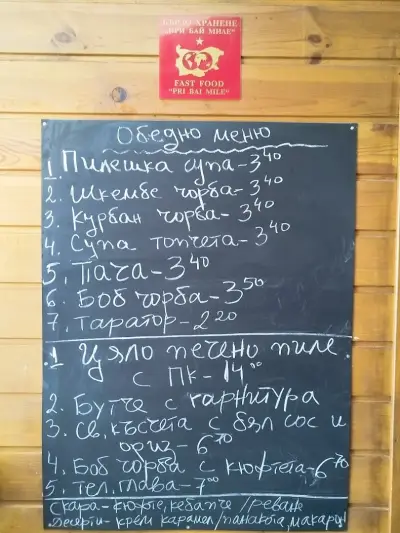 БЪРЗО ХРАНЕНЕ
"ПРИ БАЙ МИЛЕ"
FAST FOOD
"PRI BAI MILE"
Обедно меню
1. Пилешка супа - 3 40
2. Шкембе чорба - 3 40
3. Курбан чорба - 3 40
4. Супа топчета - 3 40
5. Пача - 3 40
6. Боб чорба - 3 50
7. Таратор - 2 20
1 Цяло печено пиле
с ПК - 14 00
2. Бутче с гарнитура
3. Св. късчета с бял сос и
ориз - 6 70
4. Боб чорба с кюфтета - 6 70
5. Тел. глава - 7 00
Скара - кюфте, кебапче /
Десерти - крем карамел / панакота, макарон